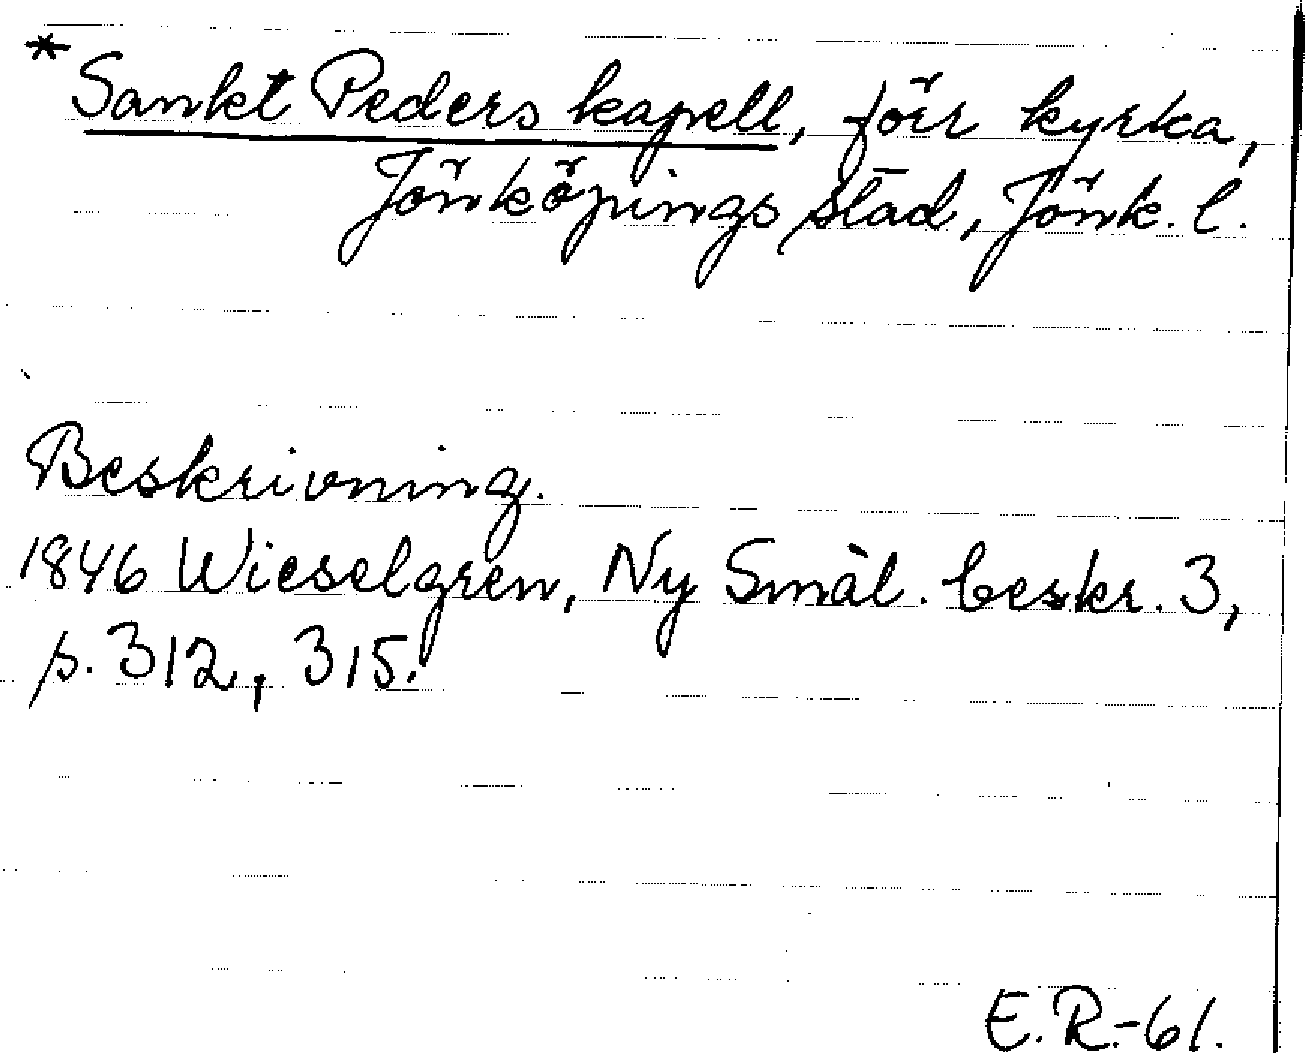 *Sankt Peders kapell, förr kyrka,
Jönköpings stad, Jönk. l.
Beskrivning.
1846 Wieselgren, Ny Smål. beskr. 3,
s. 312, 315.
E.R.-61.